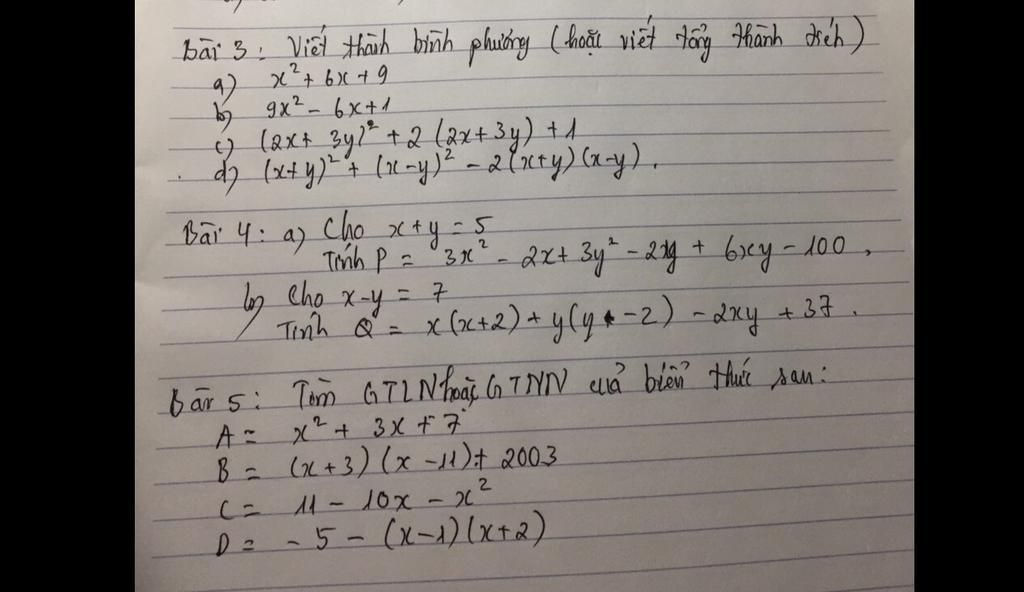 Bài 3: Viết thành bình phương (hoặc viết tổng thành tích)
a) x² + 6x + 9
b) 9x² - 6x + 1
c) (2x + 3y)² + 2 (2x + 3y) + 1
d) (x+y)² + (x-y)² - 2(x+y)(x-y).
Bài 4: a) Cho x+y = 5
Tính P = 3x² - 2x + 3y² - 2y + 6xy - 100,
b) Cho x-y = 7
Tính Q = x(x+2) + y(y-2) - 2xy + 37.
Bài 5: Tìm GTLN hoặc GTNN của biển thức sau:
A = x² + 3x + 7
B = (x+3)(x-11) + 2003
C = 11 - 10x - x²
D = - 5 - (x-1)(x+2)